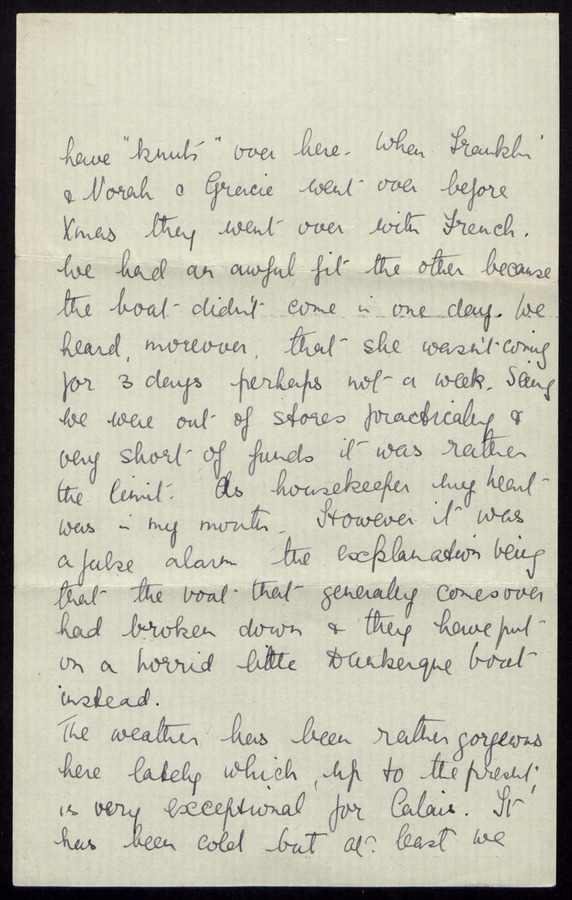 have "knuts" over here. When Franklin
& Norah & Gracie went over before
Xmas they went over with French.
We had an awful fit the other because
the boat didn't come in one day. We
heard, moreover, that she wasn't coming
for 3 days perhaps not a week. Seeing
we were out of stores practicaley &
very short of funds it was rather
the limit. As housekeeper my heart
was in my mouth. However it was
a false alarm the explanation being
that the boat that generaley comes over
had broken down & they have put
on a horrid little Dunkerque boat
instead.
The weather has been rather gorgeous
here lately which, up to the present,
is very exceptional for Calais. It
has been cold but at least we